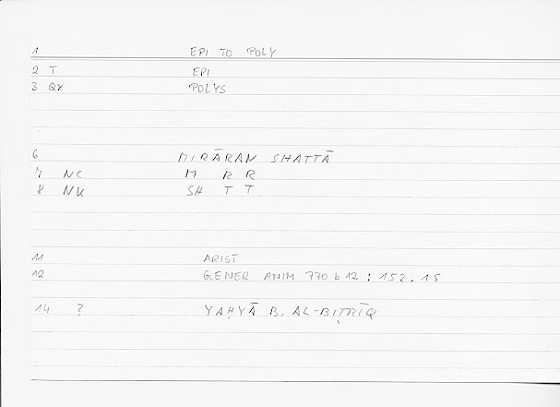 1 EPI TO POLY
2 T EPI
3 QY POLYS
6 MIRĀRAN SHATTĀ
7 NC M R R
8 NK SH T T
11 ARIST
12 GENER ANIM 770 b 12 : 152.15
14 ? YAḤYĀ B. AL-BIṬRĪQ